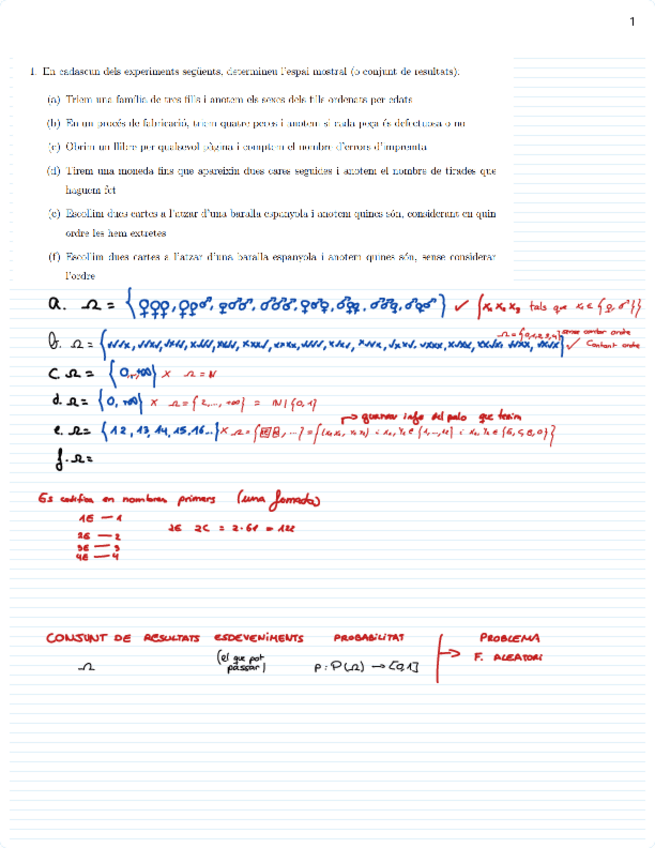 1
1. En cadascun dels experiments següents, determineu l'espai mostral (o conjunt de resultats):
(a) Triem una família de tres fills i anotem els sexes dels fills ordenats per edats
(b) En un procés de fabricació, triem quatre peces i anotem si cada peça és defectuosa o no
(c) Obrim un llibre per qualsevol pàgina i comptem el nombre d'errors d'impremta
(d) Tirem una moneda fins que apareixin dues cares seguides i anotem el nombre de tirades que
haguem fet
(e) Escollim dues cartes a l'atzar d'una baralla espanyola i anotem quines són, considerant en quin
ordre les hem extretes
(f) Escollim dues cartes a l'atzar d'una baralla espanyola i anotem quines són, sense considerar
l'ordre
a. Ω = {♀♀♀, ♀♀♂, ♀♂♂, ♂♂♂, ♀♂♀, ♂♀♀, ♂♂♀, ♂♀♂} ✓ {x₁ x₂ x₃ tals que xᵢ ∈ {♀,♂}}
Ω = {0,1,2,3,4} sense contar ordre
b. Ω = ✓ Contant ordre
c. Ω = {0,...,+∞} × Ω = ℕ
d. Ω = {0, +∞} × Ω = {2,...,+∞} = ℕ \ {0,1}
→ guanyar info del palo que tenim
e. Ω = {12, 13, 14, 15, 16...} × Ω =
f. Ω =
Es codifica en nombres primers (una fumada)
1E — 1
2E — 2 2E 2C = 2·61 = 122
3E — 3
4E — 4
CONJUNT DE RESULTATS ESDEVENIMENTS PROBABILITAT PROBLEMA
Ω (el que pot passar) p: P(Ω) → [0,1] F. ALEATORI